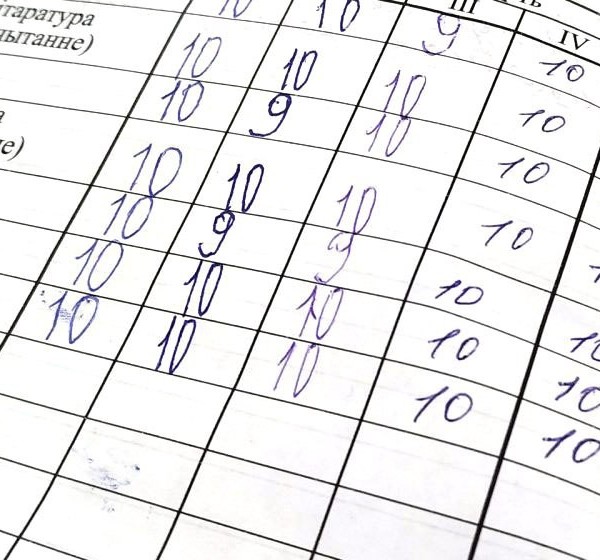 III IV
таратура 10 10 9 10
ытанне) 10 10 10 10
10 9 10 10
е) 10 10 10 10
10 9 9 10
10 10 10 10 10
10 10 10 10 10